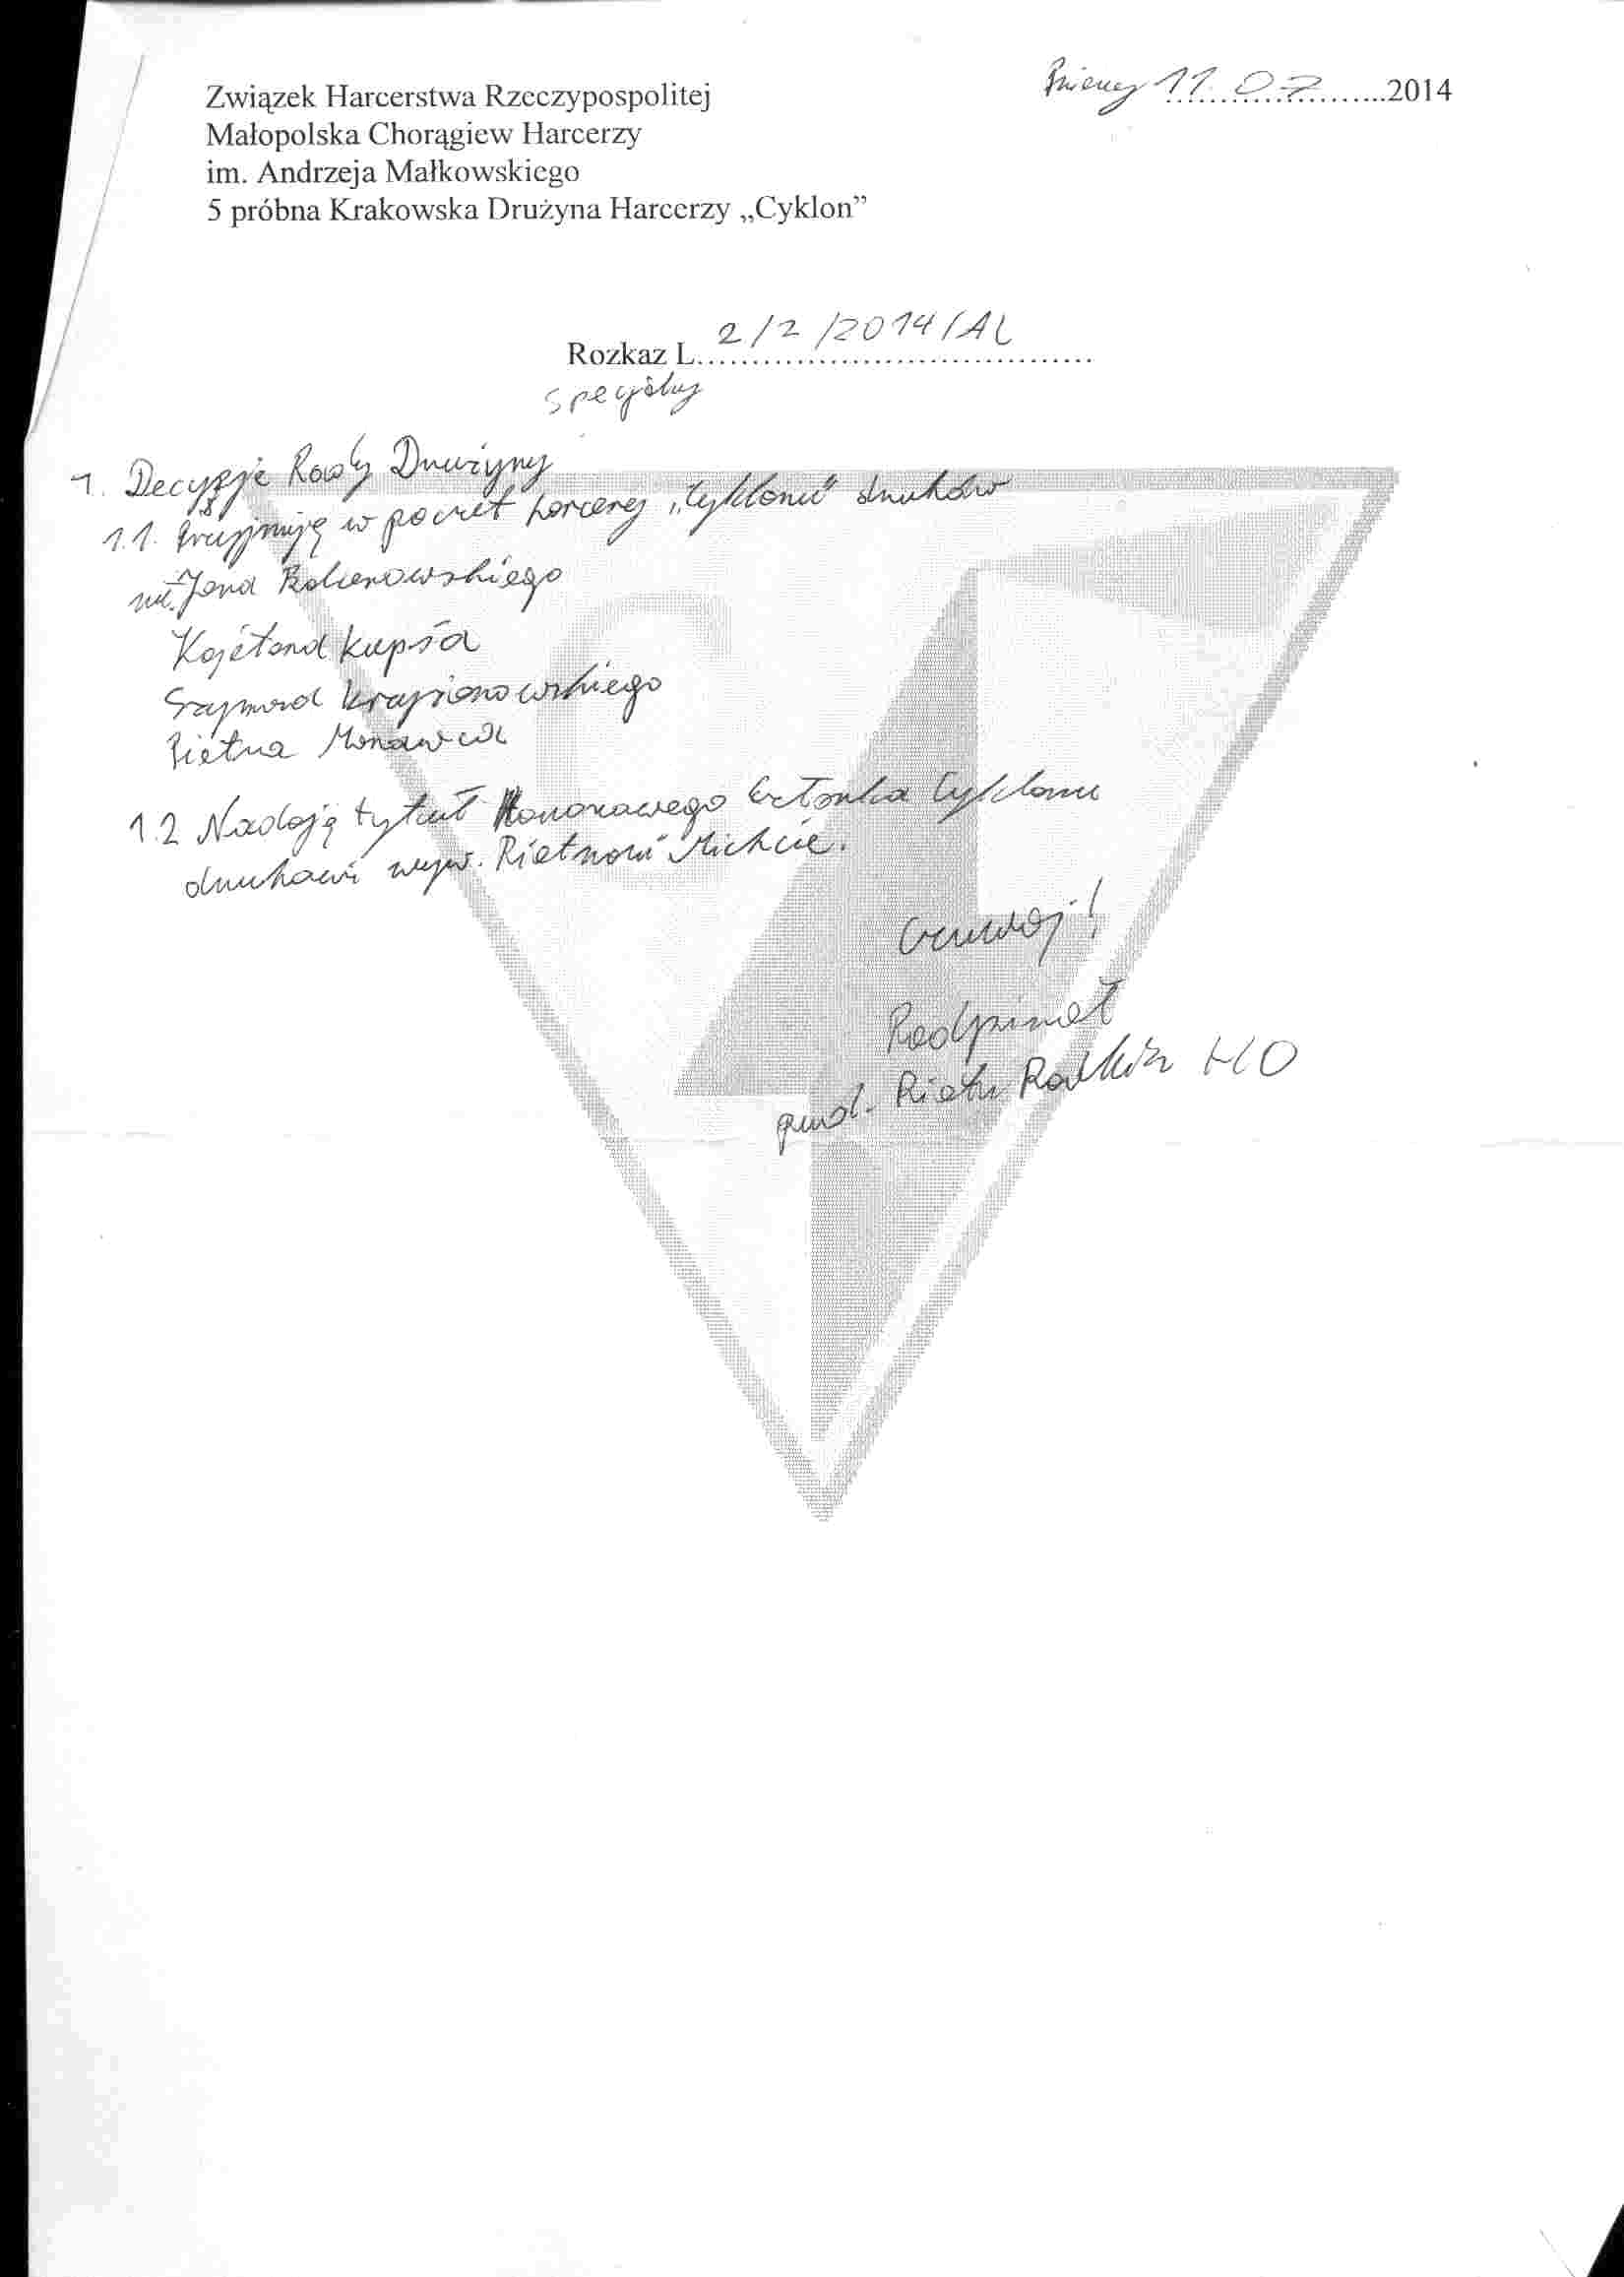 Związek Harcerstwa Rzeczypospolitej
11.07.......2014
Małopolska Chorągiew Harcerzy
im. Andrzeja Małkowskiego
5 próbna Krakowska Drużyna Harcerzy „Cyklon”
Rozkaz L. 2/2/2014/AL
specjalny
1. Decyzje Rady Drużyny
1.1. Przyjmuję w poczet harcerzy „Cyklonu” druhów
Jana
Kajetana Kupsia
Szymona
Piotra
1.2 Nadaję tytuł Honorowego Członka Cyklonu
druhowi wyw. Piotrowi Michcie.
Czuwaj!
Podpisał
pwd. Piotr HO